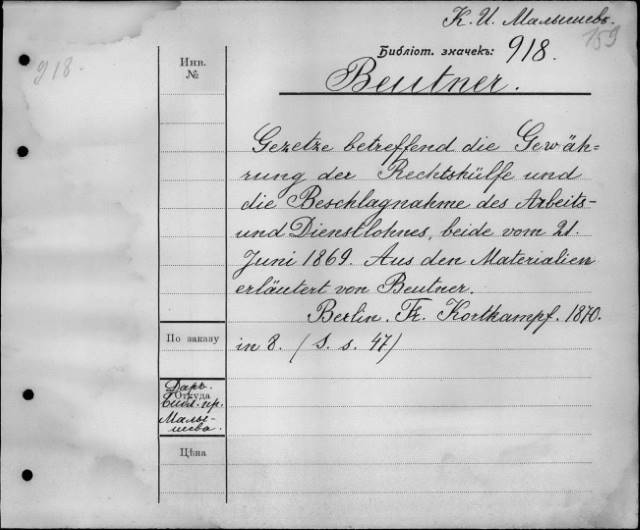 К. И. Малышевъ.
159
918.
Инв.
№
Библіот. значекъ: 918.
Beutner.
Gezetze betreffend die Gewäh-
rung der Rechtshülfe und
die Beschlagnahme des Arbeits-
und Dienstlohnes, beide vom 21.
Juni 1869. Aus den Materialien
erläutert von Beutner.
Berlin. Fr. Kortkampf. 1870.
По заказу
in 8. (S. s. 47)
Даръ.
Откуда
Библ. пр.
Малы-
шева.
Цѣна